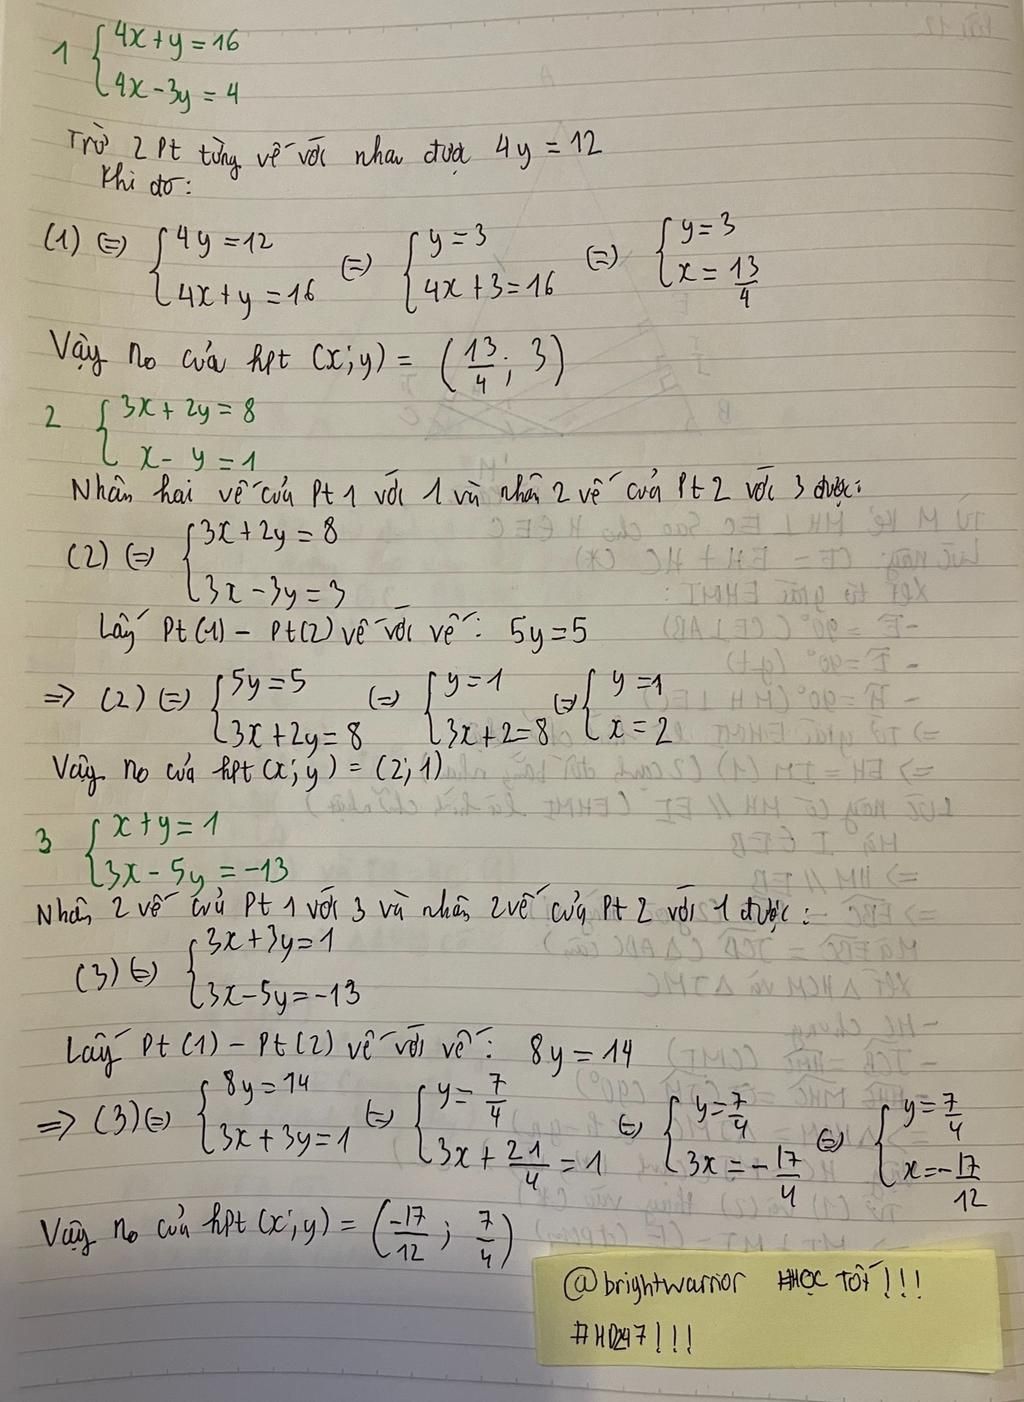 1 { 4x + y = 16
4x - 3y = 4
Trừ 2 Pt từng vế với nhau được 4y = 12
Khi đó:
(1) (=) { 4y = 12 (=) { y = 3 (=) { y = 3
4x + y = 16 4x + 3 = 16 x = 13/4
Vậy no của hpt (x; y) = (13/4; 3)
2 { 3x + 2y = 8
x - y = 1
Nhân hai vế của Pt 1 với 1 và nhân 2 vế của Pt 2 với 3 được:
(2) (=) { 3x + 2y = 8
3x - 3y = 3
Lấy Pt(1) - Pt(2) vế với vế: 5y = 5
=> (2) (=) { 5y = 5 (=) { y = 1 (=) { y = 1
3x + 2y = 8 3x + 2 = 8 x = 2
Vậy no của hpt (x; y) = (2; 1)
3 { x + y = 1
3x - 5y = -13
Nhân 2 vế của Pt 1 với 3 và nhân 2 vế của Pt 2 với 1 được:
(3) (=) { 3x + 3y = 1
3x - 5y = -13
Lấy Pt(1) - Pt(2) vế với vế: 8y = 14
=> (3) (=) { 8y = 14 (=) { y = 7/4 (=) { y = 7/4 (=) { y = 7/4
3x + 3y = 1 3x + 21/4 = 1 3x = -17/4 x = -17/12
Vậy no của hpt (x; y) = (-17/12; 7/4)
@brightwarrior #HỌC TỐT!!!
#HD247!!!